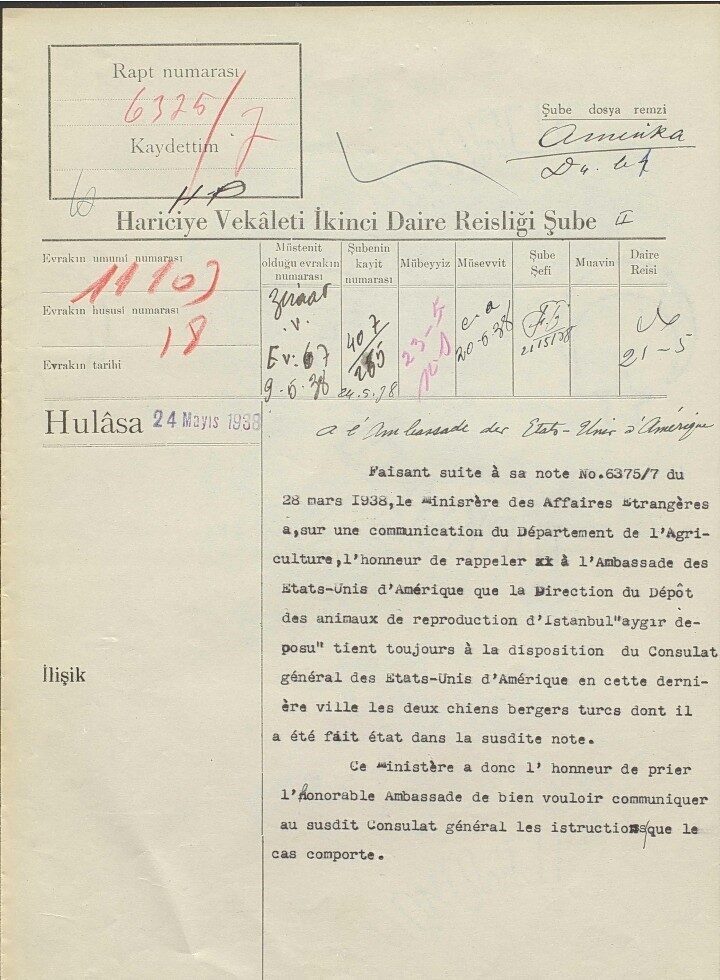 Rapt numarası
6375/7
Kaydettim
Şube dosya remzi
Amerika
Hariciye Vekâleti İkinci Daire Reisliği Şube II
Evrakın umumî numarası
11103
Evrakın hususî numarası
18
Evrakın tarihi
Müstenit olduğu evrakın numarası
Şubenin kayit numarası
Mübeyyiz
Müsevvit
Şube Şefi
Muavin
Daire Reisi
Ziraat
.V.
Ev: 67
9-5-38
407/265
24.5.38
23-5
20-5-38
21/5/38
21-5
Hulâsa
24 Mayıs 1938
a l'Ambassade des Etats-Unis d'Amérique
Faisant suite à sa note No.6375/7 du
28 mars I938,le Minisrère des Affaires Etrangères
a,sur une communication du Département de l'Agri-
culture,l'honneur de rappeler xx à l'Ambassade des
Etats-Unis d'Amérique que la Direction du Dépôt
des animaux de reproduction d'Istanbul"aygır de-
posu" tient toujours à la disposition du Consulat
général des Etats-Unis d'Amérique en cette derni-
ère ville les deux chiens bergers turcs dont il
a été fait état dans la susdite note.
İlişik
Ce Ministère a donc l' honneur de prier
l'honorable Ambassade de bien vouloir communiquer
au susdit Consulat général les istructions que le
cas comporte.